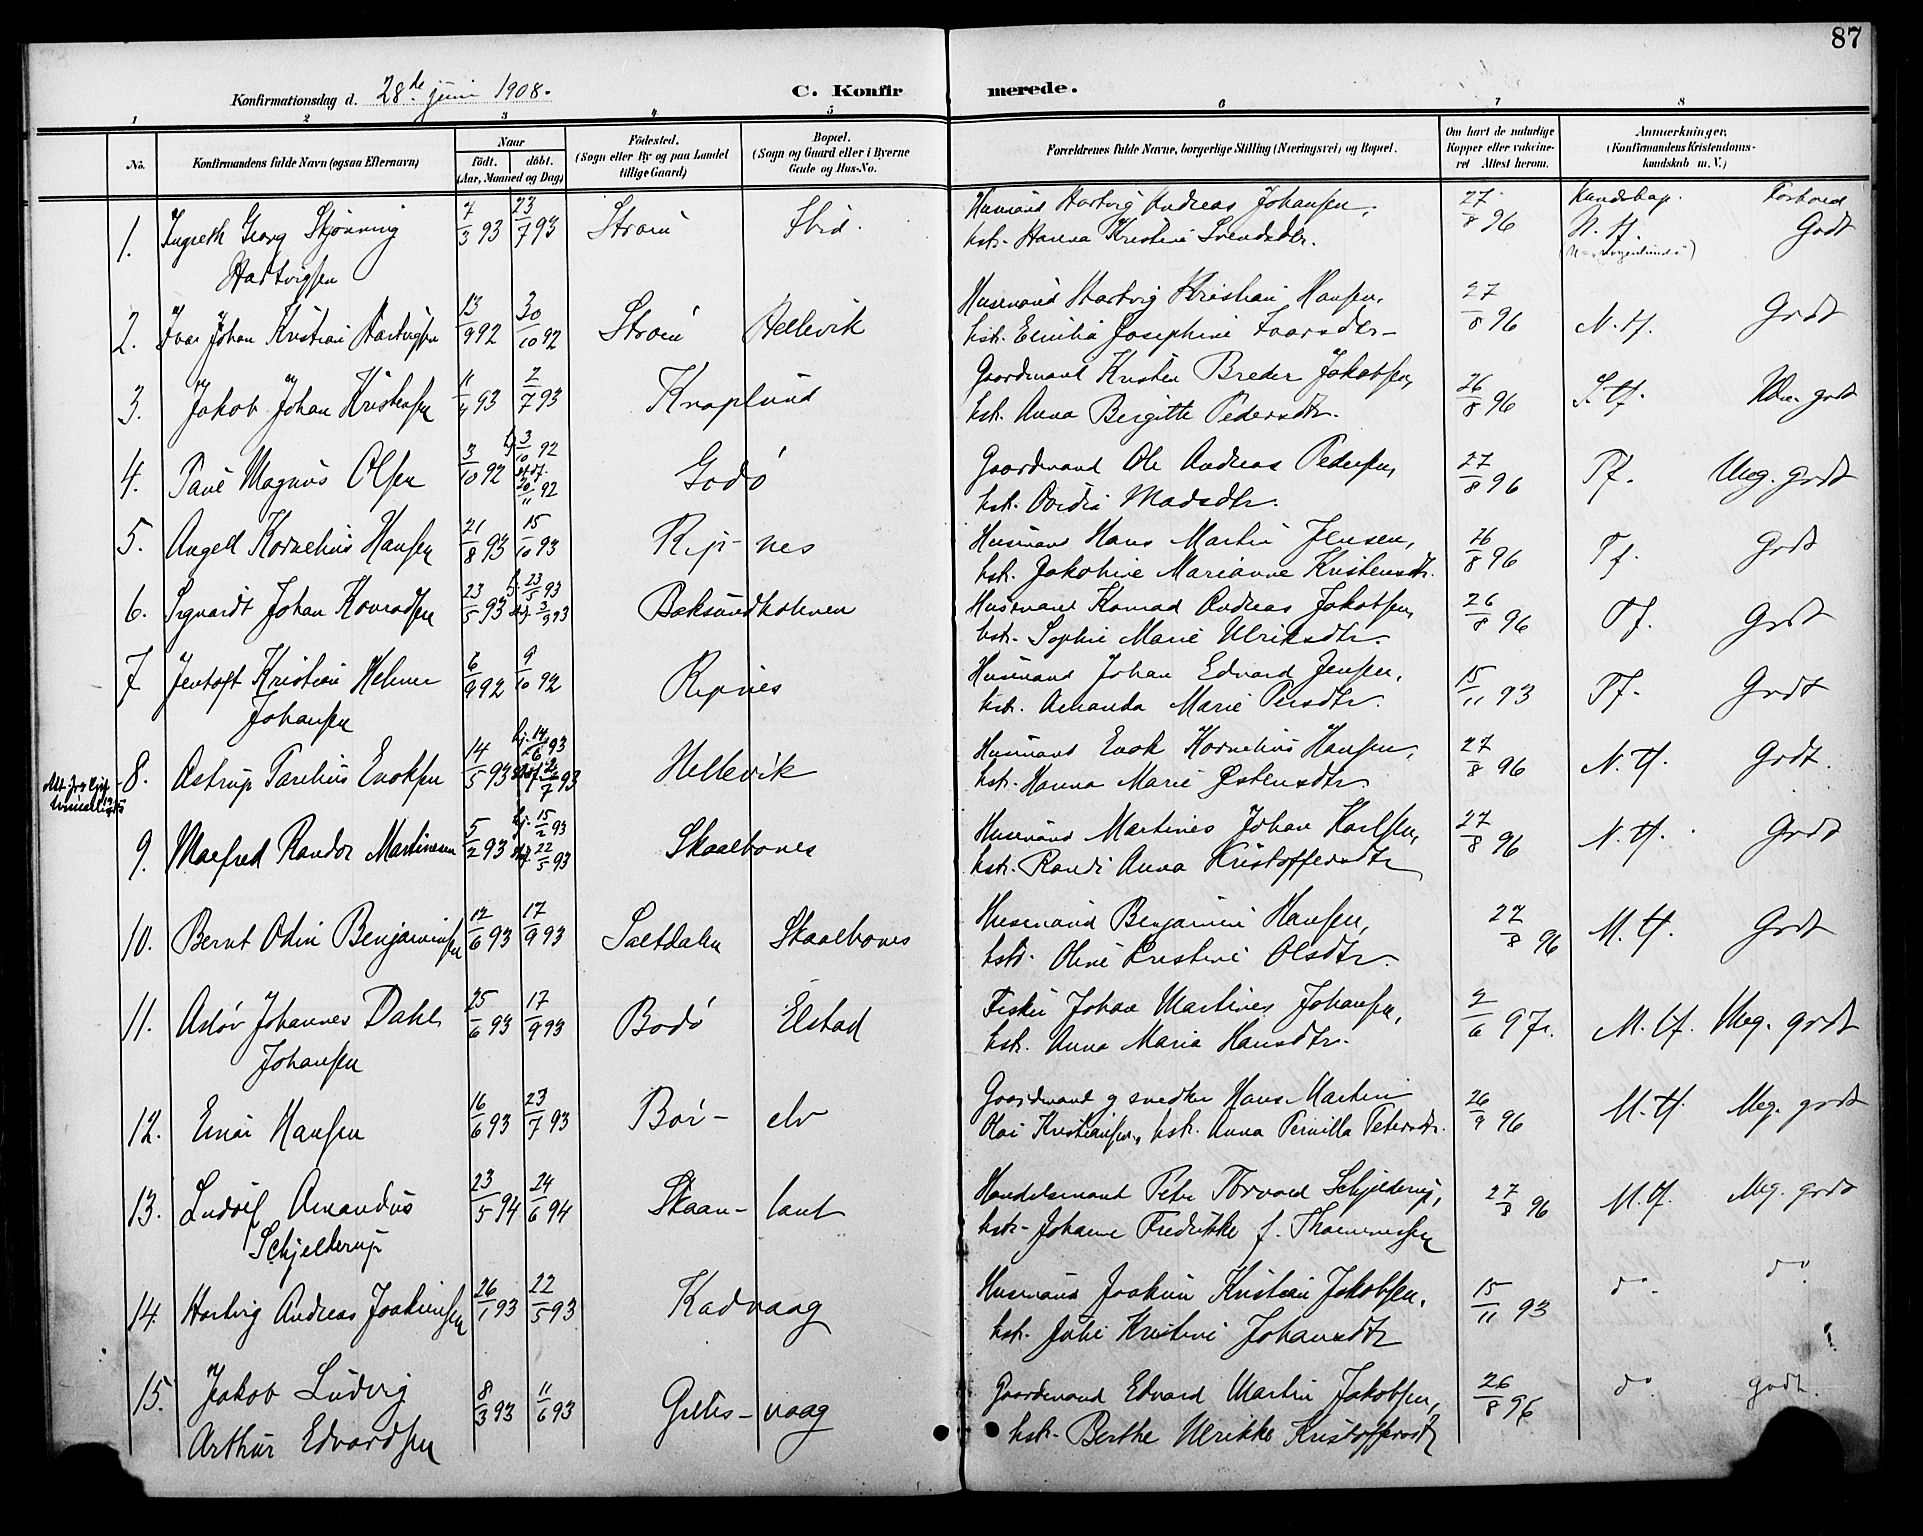 87
Konfirmationsdag d. 28de juni 1908.
C. Konfirmerede.
1 2 3 4 5 6 7 8
No. Konfirmandens fulde Navn (ogsaa Efternavn)
Naar
født. døbt.
(Aar, Maaned og Dag)
Fødested.
(Sogn eller By og paa Landet
tillige Gaard)
Bopæl.
(Sogn og Gaard eller i Byerne
Gade og Hus-No.
Forældrenes fulde Navne, borgerlige Stilling (Næringsvei) og Bopæl.
Om havt de naturlige
Kopper eller vaccine-
ret Attest herom.
Anmærkninger.
(Konfirmandens Kristendoms-
kundskab m. V.)
Kundskap. Forhold
1. Georg Skjønning 7/3 93 23/7 93 Husmand Hartvig Andreas Johansen, 27/8 96 N. tf. Godt
Hartvigsen hstr. Hanna Kristine Svendsdtr.
2. Ivar Johan Kristian Hartvigsen 13/9 92 30/10 92 Hellevik Husmand Hartvig Kristian Hansen, 27/8 96 N. tf. Godt
hstr. Emilie Josephine Ivarsdtr
3. Jakob Johan Kristensen 11/4 93 2/7 93 Knaplund Gaardmand Kristen Breder Jakobsen, 26/8 96 godt
hstr. Anna Bergitte Pedersdtr.
4. Paul Magnus Olsen 3/10 92 hj. 3/10 92 st. df. 20/11 92 Godø Gaardmand Ole Andreas Pedersen, 27/8 96 Tf. Meg. godt
hstr. Ovidia Madsdtr.
5. Angell Kornelius Hansen 21/8 93 15/10 93 Ripnes Husmand Hans Martin Jensen, 26/8 96 Tf. Godt
hstr. Jakobine Marianne Kristensdtr.
6. Sigvardt Johan Konradsen 23/5 93 hj. 23/5 93 Baksundholmen Husmand Konrad Andreas Jakobsen, 26/8 96 Tf. Godt
hstr. Sophie Marie Ulriksdtr.
7 Jentoft Kristian Helmer 6/9 92 9/10 92 Ripnes Husmand Johan Edvard Jensen, 15/11 93 Tf. Godt
Johansen hstr. Amanda Marie Persdtr.
8. Astrup Parelius Enoksen 14/5 93 hj. 14/6 93 Hellevik Husmand Enok Kornelius Hansen, 27/8 96 N. tf. Godt.
hstr. Hanna Marie Østensdtr.
9. Manfred Randor Martinsen 5/2 93 hj. 15/2 93 22/5 93 Skaalbones Husmand Martines Johan Karlsen, 27/8 96 N. tf. Godt
hstr. Randi Anna Kristoffersdtr
10. Bernt Odin Benjaminsen 12/6 93 17/9 93 Saltdalen Skaalbones Husmand Benjamin Hansen, 27/8 96 M. tf. Godt
hstr. Oline Kristine Olsdtr.
11. Johannes Dahl 25/6 93 17/9 93 Bodø Elstad Fisker Johan Martines Johansen, 2/6 97 M. tf. Meg. godt
Johansen hstr. Anna Maria Hansdtr.
12. Einar Hansen 16/6 93 23/7 93 Børelv Gaardmand og snedker Hans Martin 26/9 96 M. tf. Meg. godt
Olai Kristiansen, hstr. Anna Pernilla Petersdtr.
13. Ludolf Amandus 23/5 94 24/6 94 Skaanlant Handelsmand Peter Torvald Schjelderup, 27/8 96 M. tf. Meg. godt
Schjelderup hstr. Johanne Fredrikke f. Thommesen
14. Hartvig Andreas Joakimsen 26/1 93 22/5 93 Kadvaag Husmand Joakim Kristian Jakobsen, 15/11 93 do. do.
hstr. Julie Kristine Johansdtr
15. Jakob Ludvig 8/3 93 11/6 93 Gillisvaag Gaardmand Edvard Martin Jakobsen, 26/8 96 do godt.
Arthur Edvardsen hstr. Berthe Ulrikke Kristoffersdtr